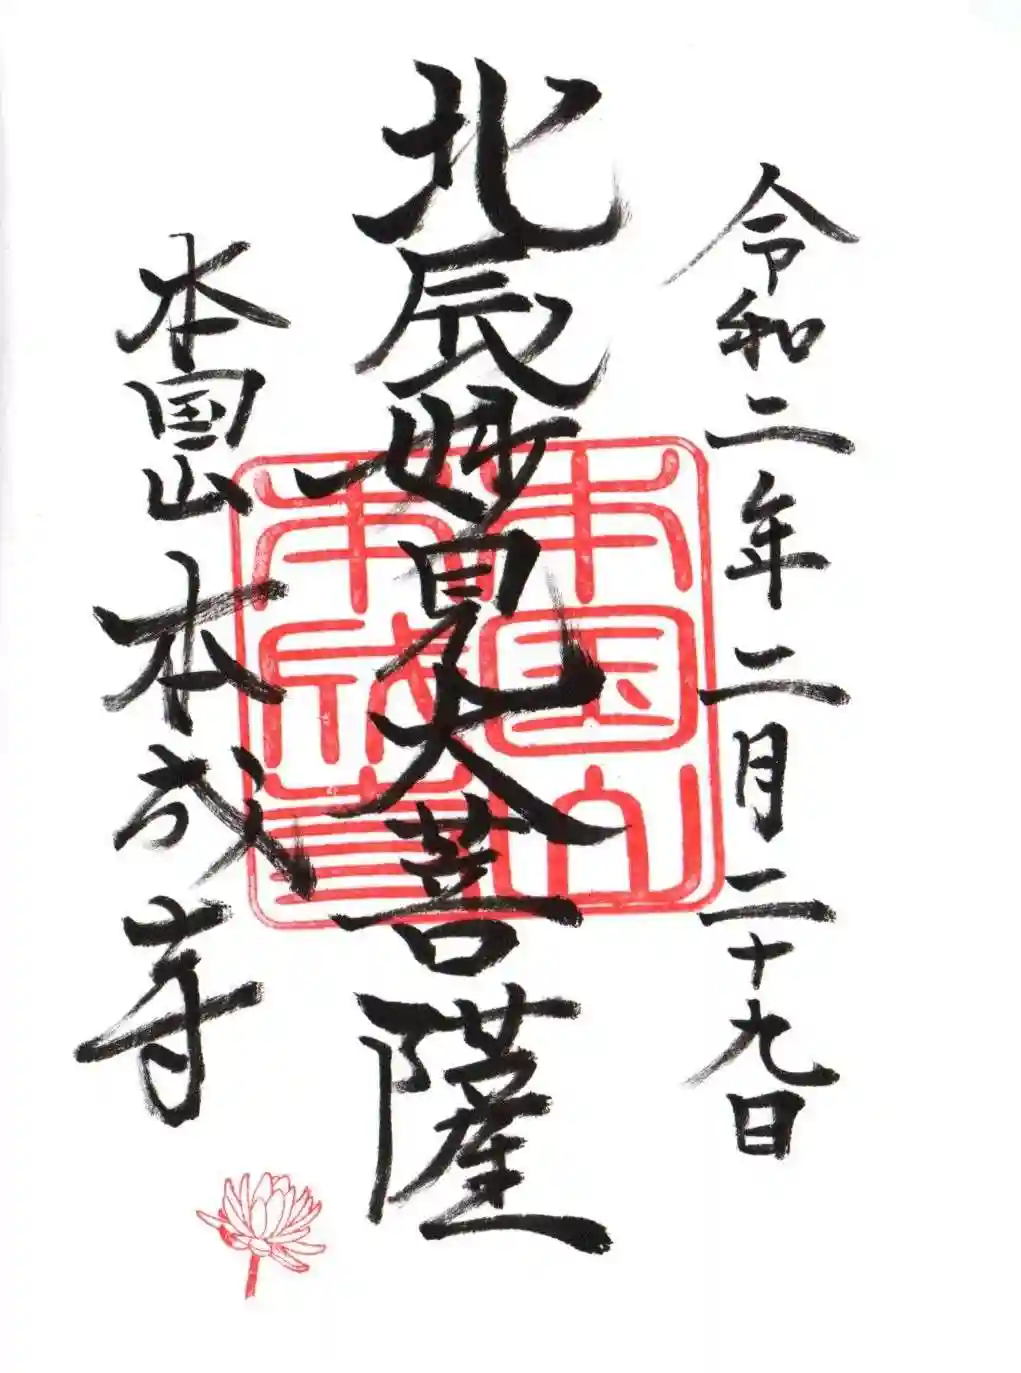 令和二年二月二十九日
北辰妙見大菩薩
本国山本成寺
本国山
本成寺